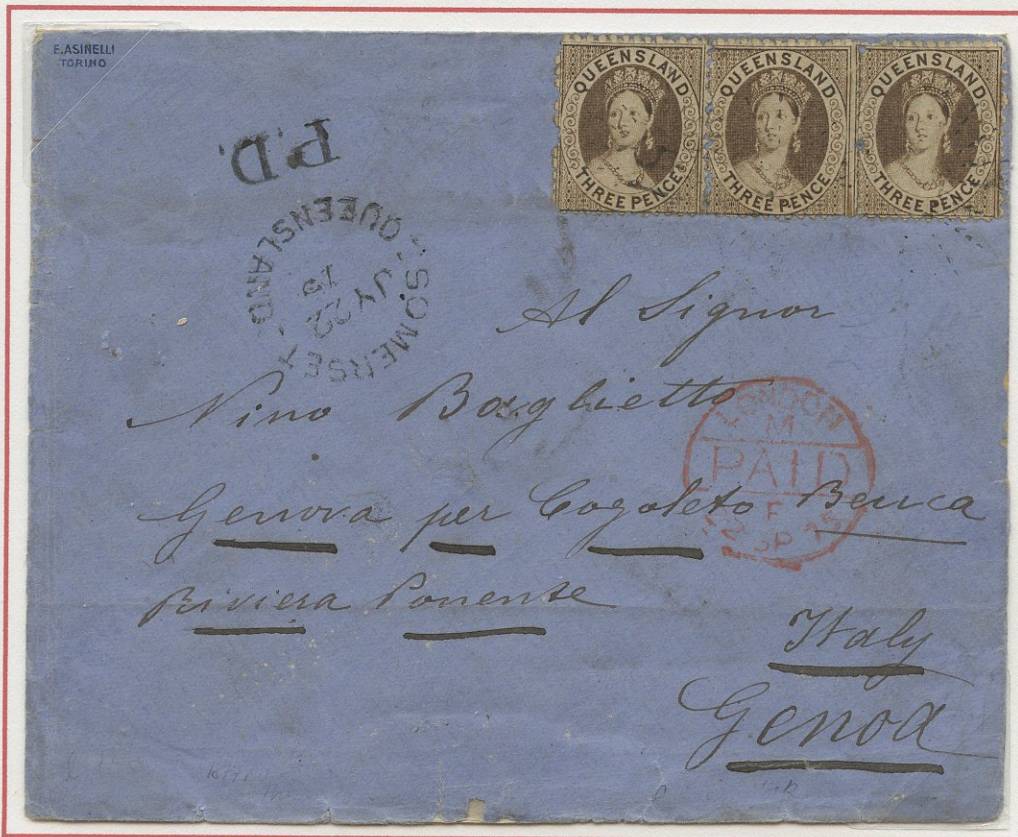 E. ASINELLI
TORINO
QUEENSLAND
THREE PENCE
QUEENSLAND
THREE PENCE
QUEENSLAND
THREE PENCE
P.D.
SOMERSET
QUEENSLAND
JY 22
Al Signor
Nino Baglietto
LONDON
M
PAID
Genova per Cogoleto
Riviera Ponente
Italy
Genoa